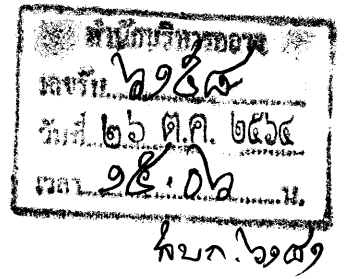 สำนักบริหารกลาง
เลขรับ ๖๑๕๘
วันที่ ๒๖ ต.ค. ๒๕๖๔
เวลา ๑๕.๐๖ น.